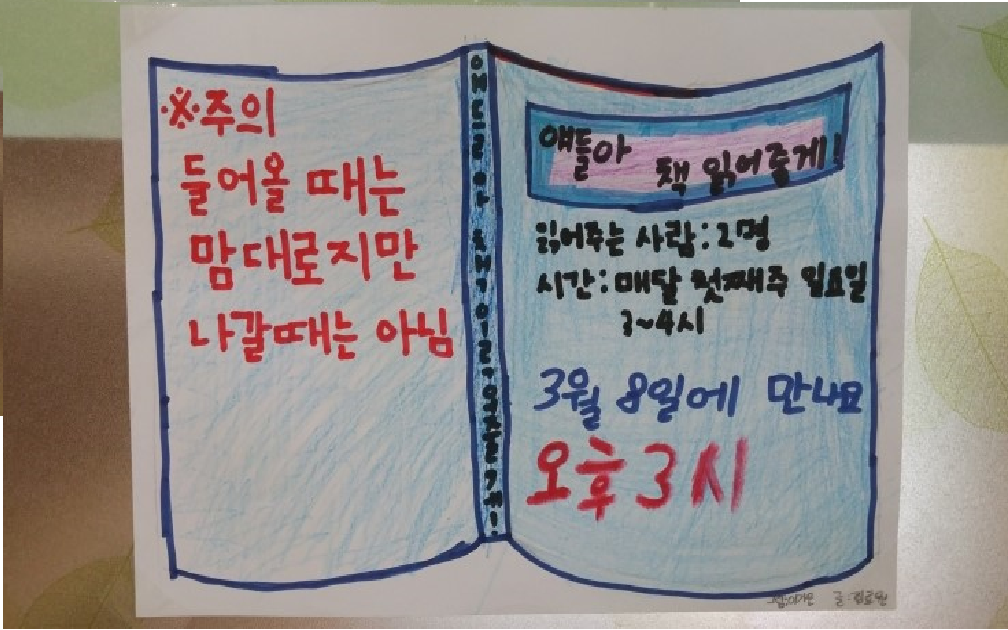 ※주의
들어올 때는
맘대로지만
나갈때는 아님
얘들아 책 읽어줄게!
얘들아
책 읽어줄게!
읽어주는 사람:2명
시간:매달 첫째주 일요일
3~4시
3월 8일에 만나요
오후 3시